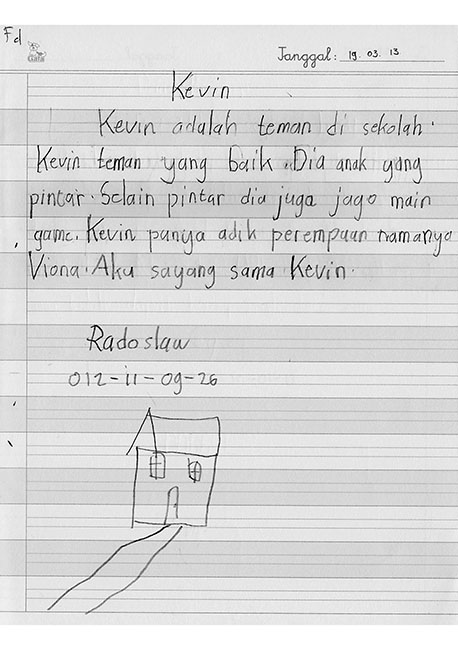 Fd
Tanggal: 19. 03. 13
Kevin
Kevin adalah teman di sekolah.
Kevin teman yang baik. Dia anak yang
pintar. Selain pintar dia juga jago main
game. Kevin punya adik perempuan namanya
Viona. Aku sayang sama Kevin.
Radoslaw
012-11-09-26